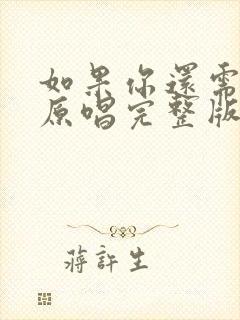 如果你還需
原唱完整版
蔣許生